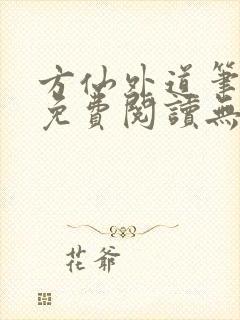 方仙外道筆
免費閱讀無
花爺